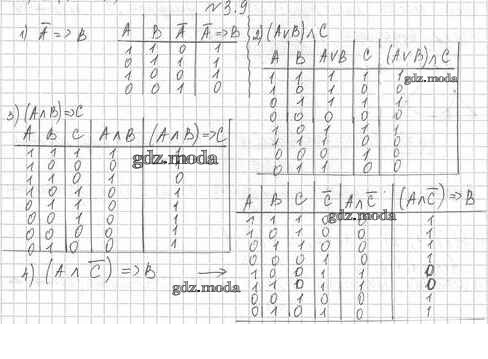 №3.9
1) Ā => B
A B Ā Ā=>B
1 1 0 1
0 1 1 1
1 0 0 1
0 0 1 0
2) (A∨B)∧C
A B A∨B C (A∨B)∧C
1 1 1 1 1
1 0 1 0 0
0 1 1 1 1
0 0 0 0 0
1 0 1 1 1
1 1 1 0 0
0 0 0 1 0
0 1 1 0 0
gdz.moda
3) (A∧B)=>C
A B C A∧B (A∧B)=>C
1 1 1 1 1
1 0 0 0 1
1 1 0 1 0
1 0 1 0 1
0 1 1 0 1
0 0 1 0 1
0 0 0 0 1
0 1 0 0 1
gdz.moda
4) (A∧C̄) => B
gdz.moda
A B C C̄ A∧C̄ (A∧C̄)=>B
1 1 1 0 0 1
1 0 1 0 0 1
0 1 1 0 0 1
0 0 0 1 0 1
1 0 0 1 1 0
1 1 0 1 1 0
0 0 1 0 0 1
0 1 0 1 0 1
gdz.moda